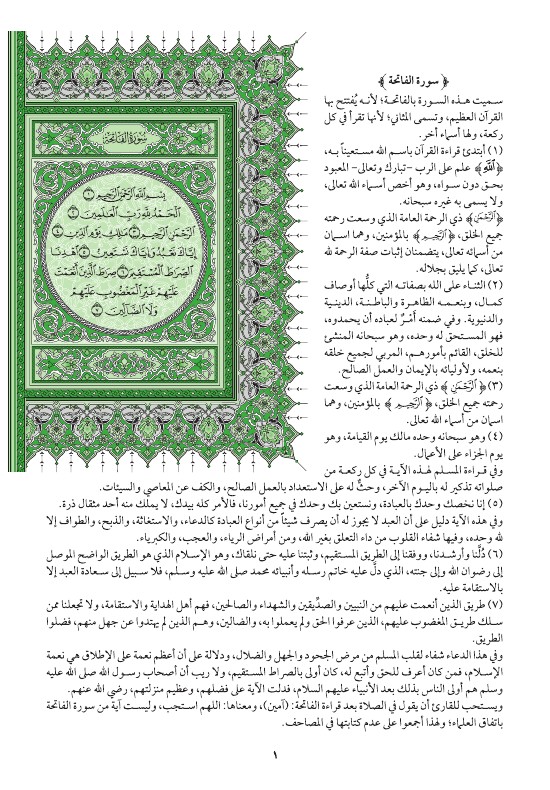 ﴿ سورة الفاتحة ﴾
سميت هذه السورة بالفاتحة؛ لأنه يُفتتح بها
القرآن العظيم، وتسمى المثاني؛ لأنها تقرأ في كل
ركعة، ولها أسماء أخر.
(١) أبتدئ قراءة القرآن باسم الله مستعيناً به،
﴿ٱللَّهِ﴾ علم على الرب -تبارك وتعالى- المعبود
بحق دون سواه، وهو أخص أسماء الله تعالى،
ولا يسمى به غيره سبحانه.
﴿ٱلرَّحۡمَٰنِ﴾ ذي الرحمة العامة الذي وسعت رحمته
جميع الخلق، ﴿ٱلرَّحِيمِ﴾ بالمؤمنين، وهما اسمان
من أسمائه تعالى، يتضمنان إثبات صفة الرحمة لله
تعالى، كما يليق بجلاله.
(٢) الثناء على الله بصفاته التي كلُّها أوصاف
كمال، وبنعمه الظاهرة والباطنة، الدينية
والدنيوية. وفي ضمنه أَمْرٌ لعباده أن يحمدوه،
فهو المستحق له وحده، وهو سبحانه المنشئ
للخلق، القائم بأمورهم، المربي لجميع خلقه
بنعمه، ولأوليائه بالإيمان والعمل الصالح.
(٣) ﴿ٱلرَّحۡمَٰنِ﴾ ذي الرحمة العامة الذي وسعت
رحمته جميع الخلق، ﴿ٱلرَّحِيمِ﴾ بالمؤمنين، وهما
اسمان من أسماء الله تعالى.
(٤) وهو سبحانه وحده مالك يوم القيامة، وهو
يوم الجزاء على الأعمال.
وفي قراءة المسلم لهذه الآية في كل ركعة من
صلواته تذكير له باليوم الآخر، وحثٌّ له على الاستعداد بالعمل الصالح، والكف عن المعاصي والسيئات.
(٥) إنا نخصك وحدك بالعبادة، ونستعين بك وحدك في جميع أمورنا، فالأمر كله بيدك، لا يملك منه أحد مثقال ذرة.
وفي هذه الآية دليل على أن العبد لا يجوز له أن يصرف شيئاً من أنواع العبادة كالدعاء، والاستغاثة، والذبح، والطواف إلا
لله وحده، وفيها شفاء القلوب من داء التعلق بغير الله، ومن أمراض الرياء، والعجب، والكبرياء.
(٦) دُلَّنا وأرشدنا، ووفقنا إلى الطريق المستقيم، وثبتنا عليه حتى نلقاك، وهو الإسلام الذي هو الطريق الواضح الموصل
إلى رضوان الله وإلى جنته، الذي دلَّ عليه خاتم رسله وأنبيائه محمد صلى الله عليه وسلم، فلا سبيل إلى سعادة العبد إلا
بالاستقامة عليه.
(٧) طريق الذين أنعمت عليهم من النبيين والصدِّيقين والشهداء والصالحين، فهم أهل الهداية والاستقامة، ولا تجعلنا ممن
سلك طريق المغضوب عليهم، الذين عرفوا الحق ولم يعملوا به، والضالين، وهم الذين لم يهتدوا عن جهل منهم، فضلوا
الطريق.
وفي هذا الدعاء شفاء لقلب المسلم من مرض الجحود والجهل والضلال، ودلالة على أن أعظم نعمة على الإطلاق هي نعمة
الإسلام، فمن كان أعرف للحق وأتبع له، كان أولى بالصراط المستقيم، ولا ريب أن أصحاب رسول الله صلى الله عليه
وسلم هم أولى الناس بذلك بعد الأنبياء عليهم السلام، فدلت الآية على فضلهم، وعظيم منزلتهم، رضي الله عنهم.
ويستحب للقارئ أن يقول في الصلاة بعد قراءة الفاتحة: (آمين)، ومعناها: اللهم استجب، وليست آية من سورة الفاتحة
باتفاق العلماء؛ ولهذا أجمعوا على عدم كتابتها في المصاحف.
سُورَةُ الفَاتِحَةِ
بِسۡمِ ٱللَّهِ ٱلرَّحۡمَٰنِ ٱلرَّحِيمِ ١
ٱلۡحَمۡدُ لِلَّهِ رَبِّ ٱلۡعَٰلَمِينَ ٢
ٱلرَّحۡمَٰنِ ٱلرَّحِيمِ ٣ مَٰلِكِ يَوۡمِ ٱلدِّينِ ٤
إِيَّاكَ نَعۡبُدُ وَإِيَّاكَ نَسۡتَعِينُ ٥ ٱهۡدِنَا
ٱلصِّرَٰطَ ٱلۡمُسۡتَقِيمَ ٦ صِرَٰطَ ٱلَّذِينَ أَنۡعَمۡتَ
عَلَيۡهِمۡ غَيۡرِ ٱلۡمَغۡضُوبِ عَلَيۡهِمۡ
وَلَا ٱلضَّآلِّينَ ٧
١